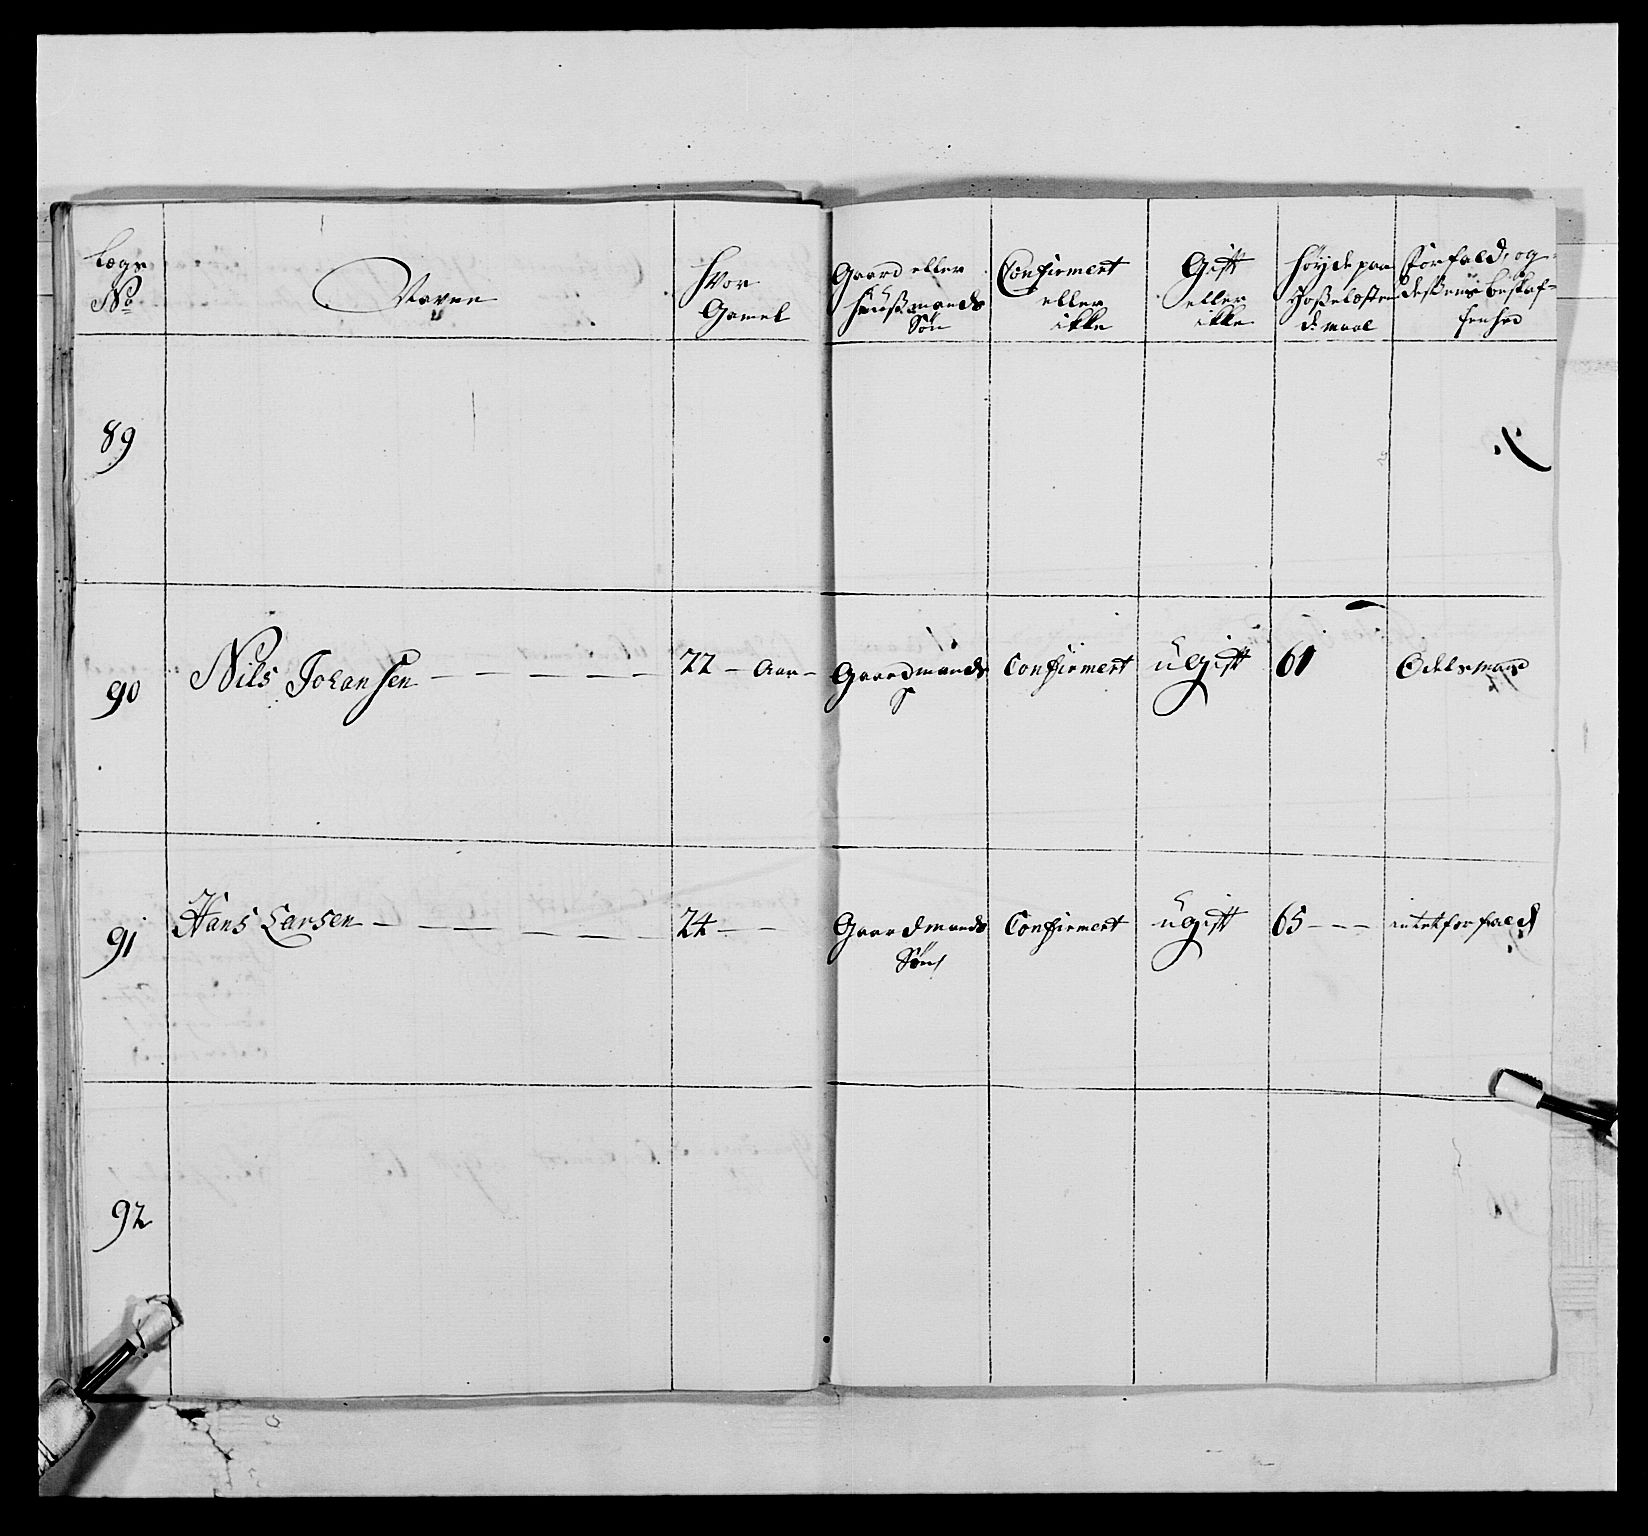 Lægs
No
Navne
Hvor
Gamel
Gaard eller
Huusmands
Søn
Confirmert
eller
ikke
Gift
eller
ikke
Høyde paa
Hoselæsten
de maal
Forfald, og
desßens beskaf-
fenhed
89
90
Nils Johansen
22 - Aar -
Gaardmands
S
Confirmert
ugift
61
Odelsmand
91
Hans Larsen
24
Gaardmands
Søn
Confirmert
ugift
65
intet forfald
92